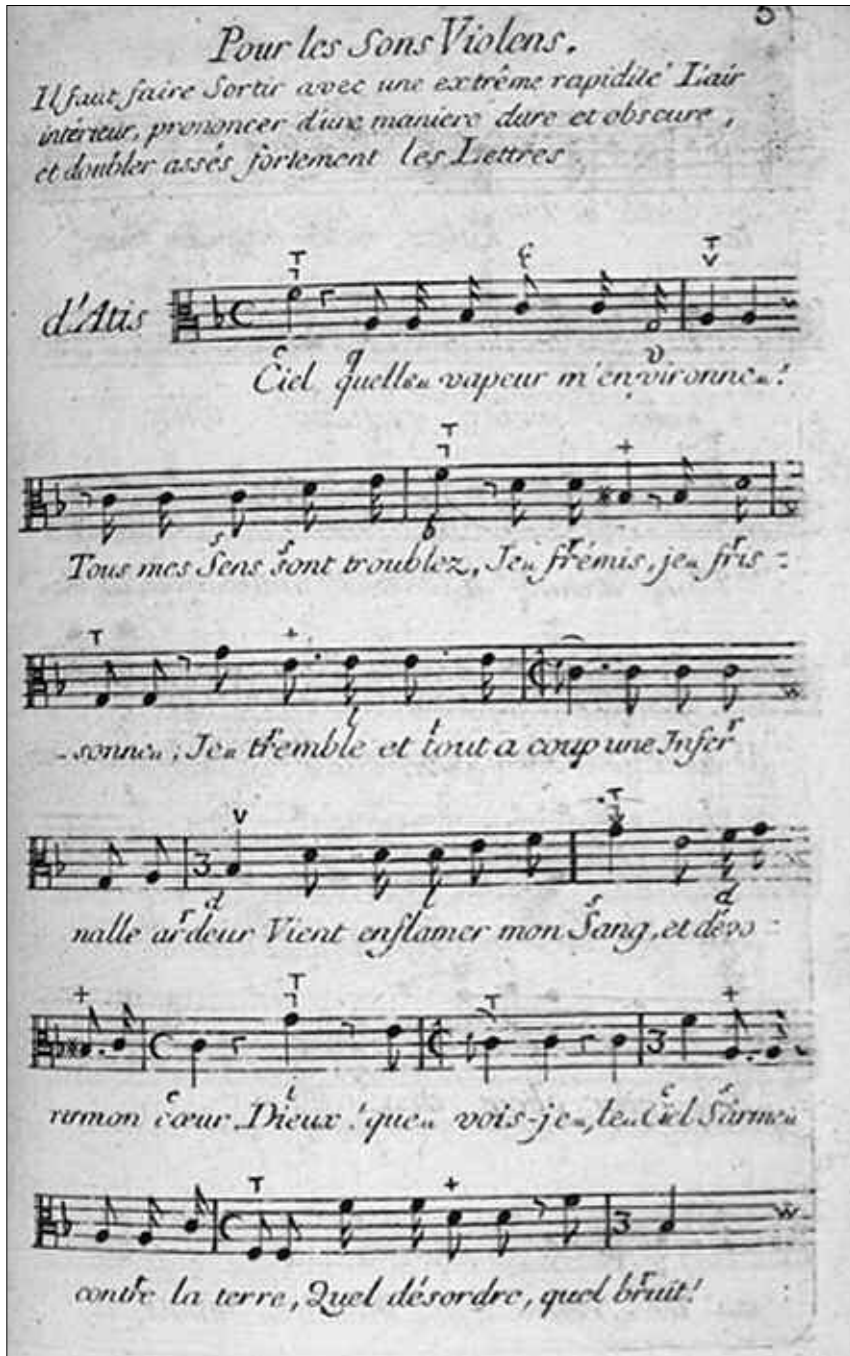 Pour les Sons Violens.
Il faut faire Sortir avec une extrême rapidité L'air
intérieur, prononcer d'une maniere dure et obscure,
et doubler assés fortement les Lettres.
d'Atis
Ciel quelle vapeur m'environne!
Tous mes Sens sont troublez, Je frémis, je fris-
-sonne; Je tremble et tout a coup une Infer
nalle ardeur Vient enflamer mon Sang, et dévo-
rer mon cœur. Dieux! que vois-je, le Ciel S'arme
contre la terre, Quel désordre, quel bruit!